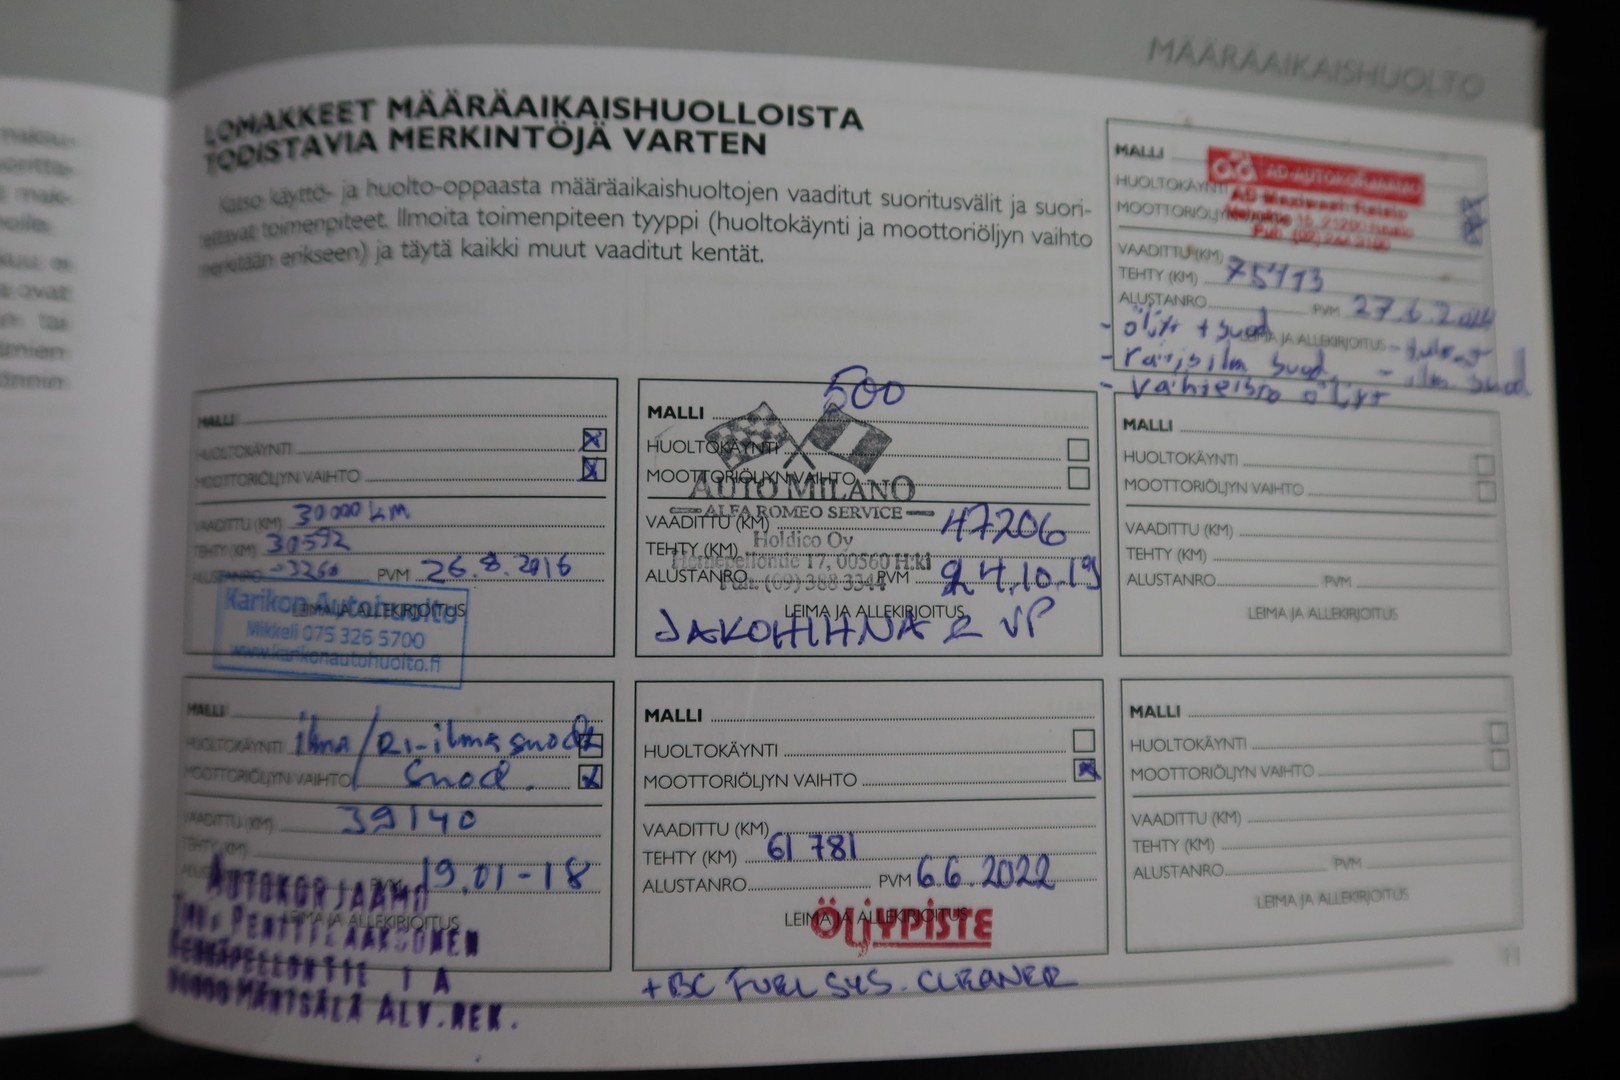 MÄÄRÄAIKAISHUOLTO
LOMAKKEET MÄÄRÄAIKAISHUOLLOISTA
TODISTAVIA MERKINTÖJÄ VARTEN
Katso käyttö- ja huolto-oppaasta määräaikaishuoltojen vaaditut suoritusvälit ja suori-
tettavat toimenpiteet. Ilmoita toimenpiteen tyyppi (huoltokäynti ja moottoriöljyn vaihto
merkitään erikseen) ja täytä kaikki muut vaaditut kentät.
MALLI
HUOLTOKÄYNTI
MOOTTORIÖLJYN VAIHTO
VAADITTU (KM) 30000 km
TEHTY (KM) 30592
ALUSTANRO -3260 PVM 26.8.2016
LEIMA JA ALLEKIRJOITUS
Karikon Autohuolto
Mikkeli 075 326 5700
www.karikonautohuolto.fi
MALLI
HUOLTOKÄYNTI ilma/Ri-ilmasuod
MOOTTORIÖLJYN VAIHTO suod.
VAADITTU (KM) 39140
TEHTY (KM)
PVM 19.01-18
LEIMA JA ALLEKIRJOITUS
AUTOKORJAAMO
PENTTI LAAKSONEN
1 A
MÄNTSÄLÄ ALV.REK.
MALLI 500
HUOLTOKÄYNTI
MOOTTORIÖLJYN VAIHTO
AUTO MILANO
ALFA ROMEO SERVICE
VAADITTU (KM) 47206
Holdico Oy
TEHTY (KM)
17, 00560 H:ki
ALUSTANRO PVM 24.10.19
Puh. (09) 388 3344
LEIMA JA ALLEKIRJOITUS
JAKOHIHNA & VP
MALLI
HUOLTOKÄYNTI
MOOTTORIÖLJYN VAIHTO
VAADITTU (KM)
TEHTY (KM) 61 781
ALUSTANRO PVM 6.6.2022
LEIMA JA ALLEKIRJOITUS
ÖLJYPISTE
+ BC FUEL SYS. CLEANER
MALLI
AD-AUTOKORJAAMO
HUOLTOKÄYNTI
AD Raisio
MOOTTORIÖLJYN
21200 Raisio
VAADITTU (KM)
TEHTY (KM) 75413
ALUSTANRO PVM 27.6.2024
LEIMA JA ALLEKIRJOITUS
- öljyt + suod
- raitisilm suod. - ilm suod
- vaihteisto öljyt
MALLI
HUOLTOKÄYNTI
MOOTTORIÖLJYN VAIHTO
VAADITTU (KM)
TEHTY (KM)
ALUSTANRO PVM
LEIMA JA ALLEKIRJOITUS
MALLI
HUOLTOKÄYNTI
MOOTTORIÖLJYN VAIHTO
VAADITTU (KM)
TEHTY (KM)
ALUSTANRO PVM
LEIMA JA ALLEKIRJOITUS
11